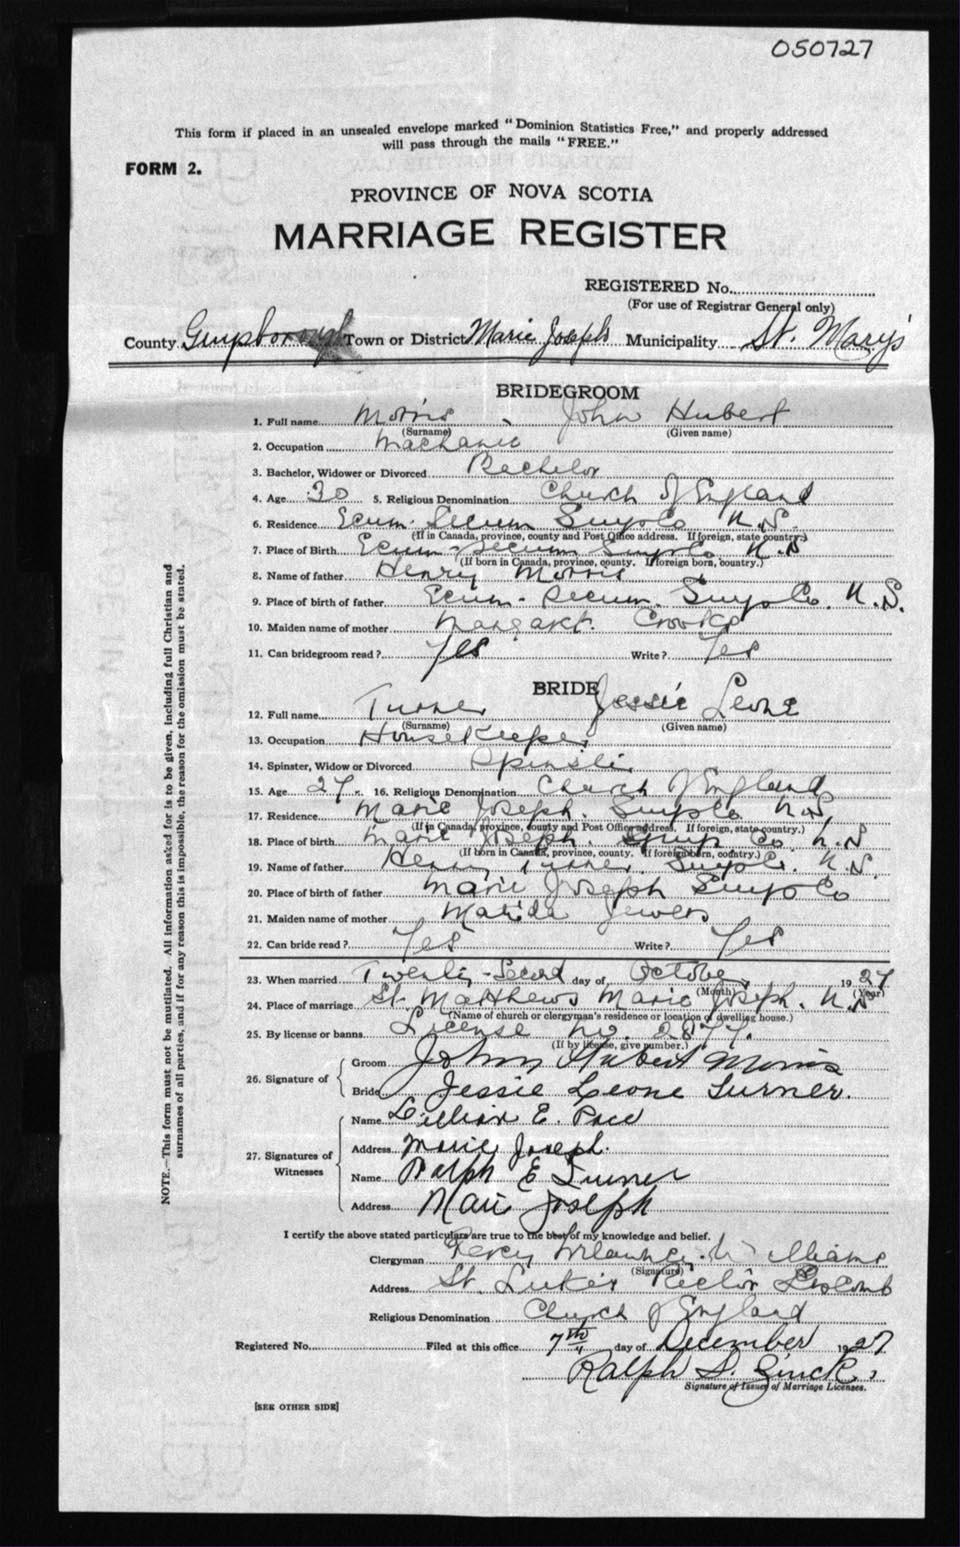 050727
This form if placed in an unsealed envelope marked "Dominion Statistics Free," and properly addressed
will pass through the mails "FREE."
FORM 2.
PROVINCE OF NOVA SCOTIA
MARRIAGE REGISTER
REGISTERED No.
(For use of Registrar General only)
County Guysborough Town or District Marie Joseph Municipality St. Mary's
BRIDEGROOM
1. Full name Morris John Hubert
(Surname) (Given name)
2. Occupation Machanic
3. Bachelor, Widower or Divorced Bachelor
4. Age 30 5. Religious Denomination Church of England
6. Residence Ecum-Secum Guys Co N.S.
(If in Canada, province, county and Post Office address. If foreign, state country.)
7. Place of Birth Ecum-Secum Guys Co. N.S
(If born in Canada, province, county. If foreign born, country.)
8. Name of father Henry Morris
9. Place of birth of father Ecum-Secum. Guys Co. N.S.
10. Maiden name of mother Margaret. Crooks
11. Can bridegroom read? Yes Write? Yes
BRIDE
12. Full name Turner Jessie Leone
(Surname) (Given name)
13. Occupation Housekeeper
14. Spinster, Widow or Divorced Spinster
15. Age 27 16. Religious Denomination Church of England
17. Residence Marie Joseph. Guys Co N.S.
(If in Canada, province, county and Post Office address. If foreign, state country.)
18. Place of birth Marie Joseph. Guys Co. N.S
(If born in Canada, province, county. If foreign born, country.)
19. Name of father Henry Turner. Guys Co. N.S.
20. Place of birth of father Marie Joseph Guys Co
21. Maiden name of mother Matilda Jewers
22. Can bride read? Yes Write? Yes
23. When married Twenty-Second day of October 1927
(Month) (Year)
24. Place of marriage St. Matthews Marie Joseph. N.S
(Name of church or clergyman's residence or location of dwelling house.)
25. By license or banns License No. 2877.
(If by license, give number.)
26. Signature of Groom John Hubert Morris
Bride Jessie Leone Turner.
27. Signatures of Witnesses
Name Lillian E. Pace
Address Marie Joseph.
Name Ralph E Turner
Address Marie Joseph
I certify the above stated particulars are true to the best of my knowledge and belief.
Clergyman Percy Williams
(Signature)
Address St. Luke's Rector Liscomb
Religious Denomination Church of England
Registered No. Filed at this office 7th day of December 1927
Ralph S. Zinck
Signature of Issuer of Marriage Licenses.
[SEE OTHER SIDE]
NOTE.—This form must not be mutilated. All information asked for is to be given, including full Christian and
surnames of all parties, and if for any reason this is impossible, the reason for the omission must be stated.